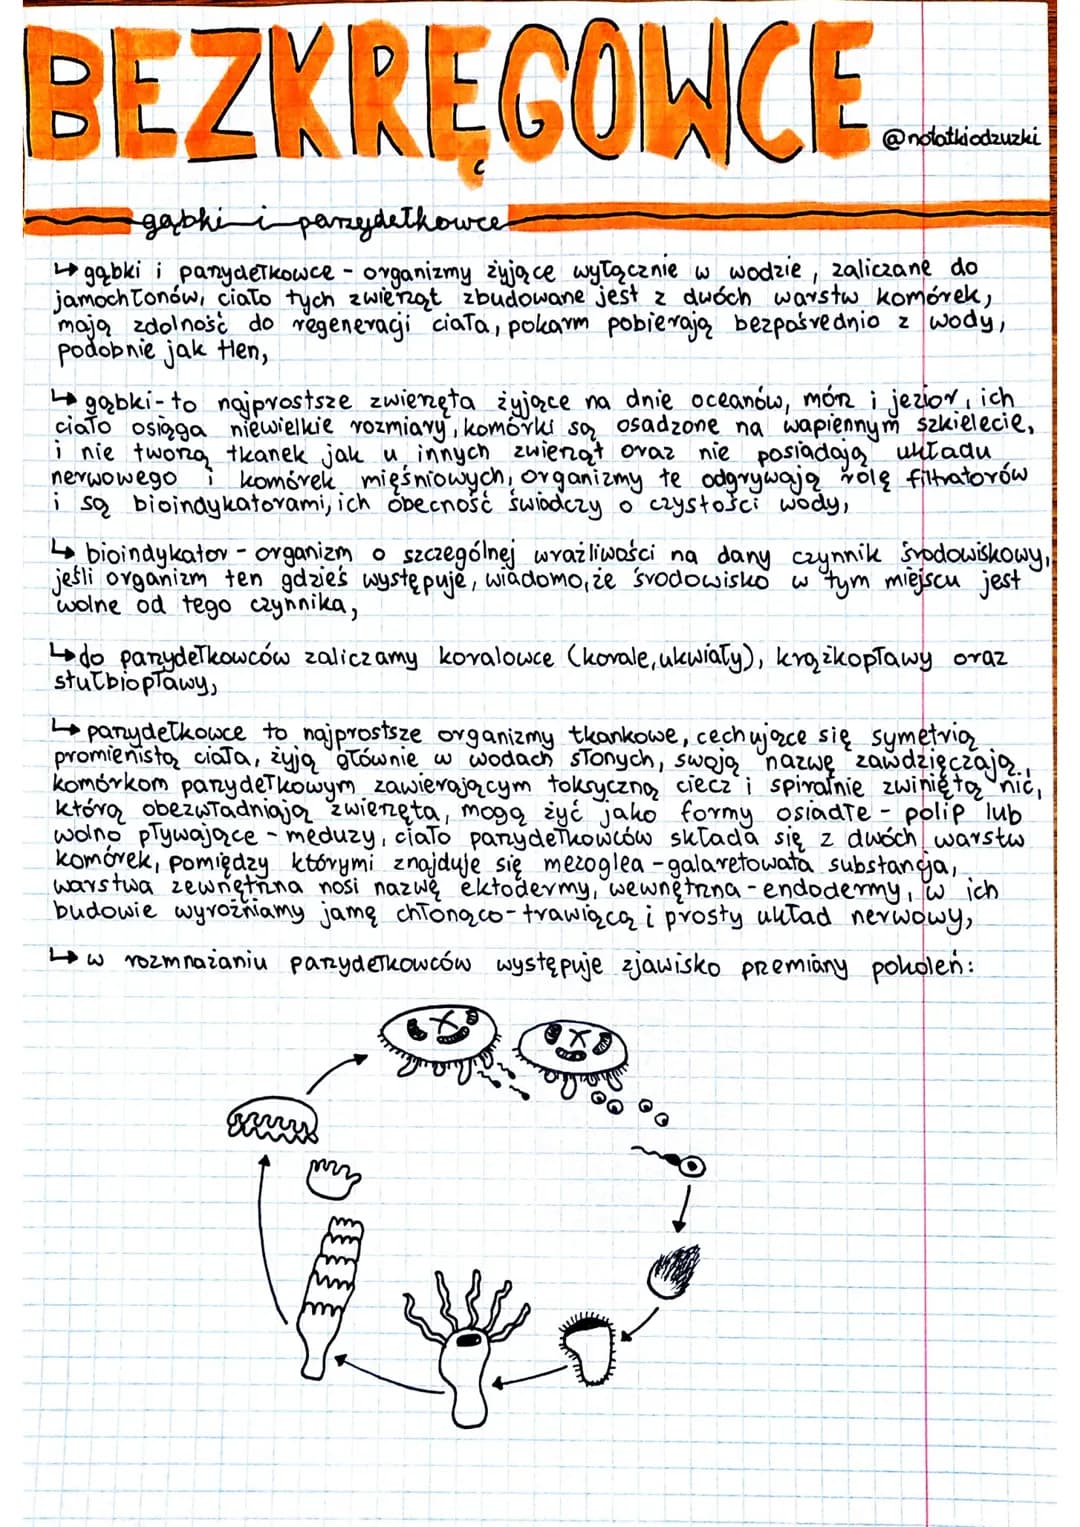 BEZKRĘGOWCE
@notatkiodzuzki
gąbki i parzydełkowce
↳ gąbki i parzydełkowce - organizmy żyjące wyłącznie w wodzie, zaliczane do
jamochłonów, ciało tych zwierząt zbudowane jest z dwóch warstw komórek,
mają zdolność do regeneracji ciała, pokarm pobierają bezpośrednio z wody,
podobnie jak tlen,
↳ gąbki - to najprostsze zwierzęta żyjące na dnie oceanów, mórz i jezior, ich
ciało osiąga niewielkie rozmiary, komórki są osadzone na wapiennym szkielecie,
i nie tworzą tkanek jak u innych zwierząt oraz nie posiadają układu
nerwowego i komórek mięśniowych, organizmy te odgrywają rolę filtratorów
i są bioindykatorami, ich obecność świadczy o czystości wody,
↳ bioindykator - organizm o szczególnej wrażliwości na dany czynnik środowiskowy,
jeśli organizm ten gdzieś występuje, wiadomo, że środowisko w tym miejscu jest
wolne od tego czynnika,
↳ do parzydełkowców zaliczamy koralowce (korale, ukwiały), krążkopławy oraz
stułbiopławy,
↳ parzydełkowce to najprostsze organizmy tkankowe, cechujące się symetrią
promienistą ciała, żyją głównie w wodach słonych, swoją nazwę zawdzięczają
komórkom parzydełkowym zawierającym toksyczną ciecz i spiralnie zwiniętą nić,
którą obezwładniają zwierzęta, mogą żyć jako formy osiadłe - polip lub
wolno pływające - meduzy, ciało parzydełkowców składa się z dwóch warstw
komórek, pomiędzy którymi znajduje się mezoglea - galaretowata substancja,
warstwa zewnętrzna nosi nazwę ektodermy, wewnętrzna - endodermy, w ich
budowie wyróżniamy jamę chłonąco-trawiącą i prosty układ nerwowy,
↳ w rozmnażaniu parzydełkowców występuje zjawisko przemiany pokoleń: